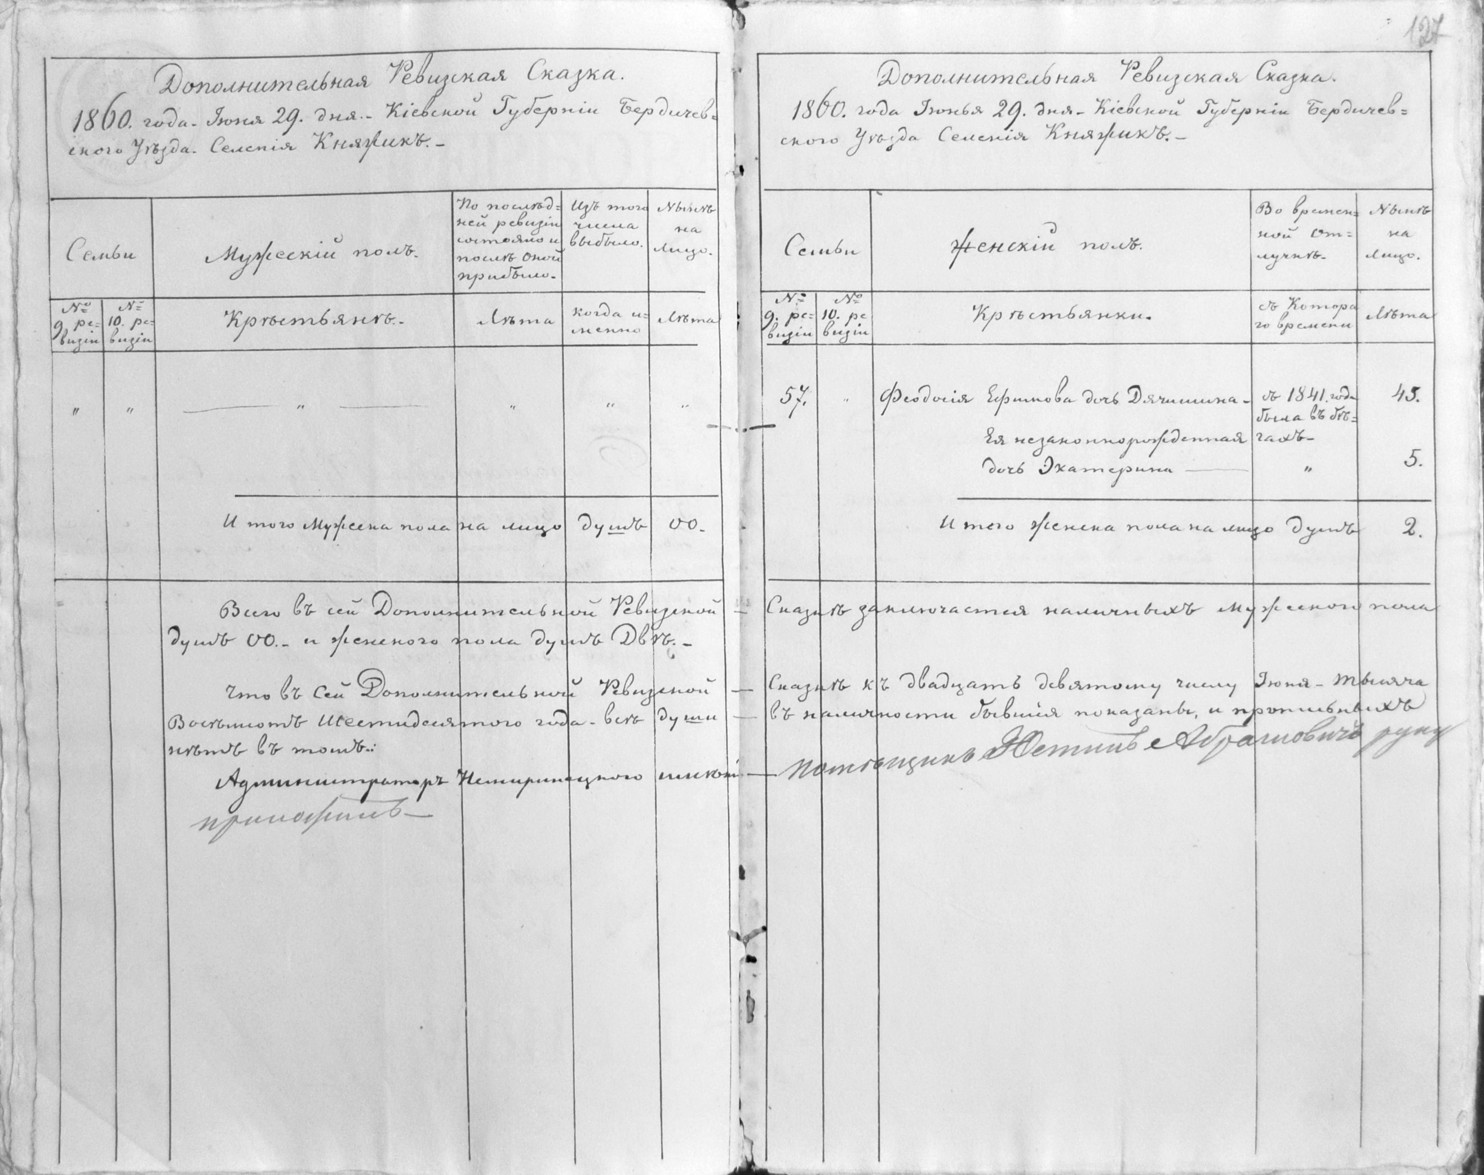 127
Дополнительная Ревизская Сказка.
1860. года. Іюня 29. дня.- Кіевской Губерніи Бердичев=
ского Уѣзда. Селенія Княжикъ.-
Семьи
Мужескій полъ.
По послѣд=
ней ревизіи
состояло и
послѣ оной
прибыло.
Изъ того
числа
выбыло.
Нынѣ
на
лицо.
№
9. ре=
визіи
№
10. ре=
визіи
Крѣстьянѣ.
Лѣта
когда и=
менно
Лѣта
" " " " " "
И того Мужска пола на лицо душъ 00.
Дополнительная Ревизская Сказка.
1860. года Іюнья 29. дня- Кіевской Губерніи Бердичев=
ского Уѣзда Селенія Княжикъ.-
Семьи
Женскій полъ.
Во времен=
ной от=
лучкѣ.
Нынѣ
на
лицо.
№
9. ре=
визіи
№
10. ре
визіи
Крѣстьянки.
съ Котора
го времени
Лѣта
57. " Феодосія Ефимова дочь Дячишина- съ 1841. года 45.
была въ бѣ=
Ея незаконнорожденная гахъ-
дочь Экатерина " 5.
И того женска пола на лицо душъ 2.
Всего въ сей Дополнительной Ревизской - Сказкѣ заключается наличныхъ Мужеского пола
душъ 00.- и женского пола душъ Двѣ.-
Что въ Сей Дополнительной Ревизской - Сказкѣ къ двадцать девятому числу Іюня - тысяча
Восѣмьотъ Шестидесятого года - всѣ души - въ наличности бывшія показаны, и прописныхъ
нѣтъ въ томъ.:
Администраторъ Немиринецкого имѣнія - помѣщикъ Устинъ Абрамовичъ руку
приложилъ-